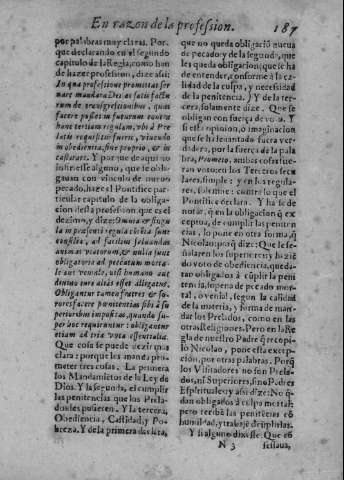 En razon de la profession. 187
por palabras muy claras. Por
que declarando en el segundo
capitulo de la Regla, como han
de hazer profession, dize assi:
In qua professione promittat ser
nare mandata Dei: ac satisfacere
de transgressionibus, quas
facere posset in futurum contra
hanc tertiam regulam, ubi à Pre
latis requisitus fuerit, vivendo
in obedientia, sine proprio, & in
castitate. Y por que de aqui no
infiriesse alguno, que se obli
gavan con vinculo de nuevo
pecado, haze el Pontifice par
ticular capitulo de la obliga
cion desta profession que es el
dezimo, y dize: Omnia & singu
la in presenti regula contenta sunt
consilia, ad facilius salvandas
animas viatorum, & nulla sunt
obligatoria ad peccatum morta
le aut veniale, nisi humano aut
divino iure alias esset alligatus.
Obligantur tamen fratres & so
rores facere poenitentias sibi à su
perioribus impositas, quando su
per hoc requirantur: obligantur
etiam ad tria vota essentialia.
Que cosa se puede dezir mas
clara: porque les manda pro-
meter tres cosas. La primera
los Mandamiētos de la Ley de
Dios. Y la segunda, el cumplir
las penitencias que los Prela-
dos les pusieren. Y la tercera,
Obediencia, Castidad, y Po-
breza. Y de la primera declara,
que no queda obligaciō nueva
de pecado; y de la segunda, que
les queda obligacion; que se ha
de entender, conforme a la ca-
lidad de la culpa, y necessidad
de la penitencia. Y de la ter-
cera, solamente dize. Que se
obligan con fuerça de voto. Y
si esta opinion, o imaginacion
que se ha levantado fuera ver-
dadera, por la fuerça de la pala
bra, Prometo, ambas cosas fue-
ran votos en los Terceros secu
lares, simple: y en los regula-
res, solemne: contra lo que el
Pontifice declara. Y ha se de
notar, que en la obligacion que ex
ceptua, de cumplir las peniten
cias, lo pone en otra forma, que
Nicolao: porque dize: Que le se-
ñalaren los superiores; y hazien
do voto de obediencia, queda-
ran obligados à cūplir la peni
tencia, so pena de pecado mor-
tal, o venial, segun la calidad
de la materia, y forma de man-
dar los Prelados, como en las
otras Religiones. Pero en la Re
gla de nuestro Padre que recopi-
lò Nicolao, pone esta excep-
cion, por otras palabras. Porque
los Visitadores no son Prela-
dos, ni Superiores, sino Padres
Espirituales: y assi dize: No que
dan obligados à culpa mortal;
pero reciba las penitēcias cō
humildad, y trabaje de cūplirlas.
Y si alguno dixesse. Que cō
N 3 fessava,